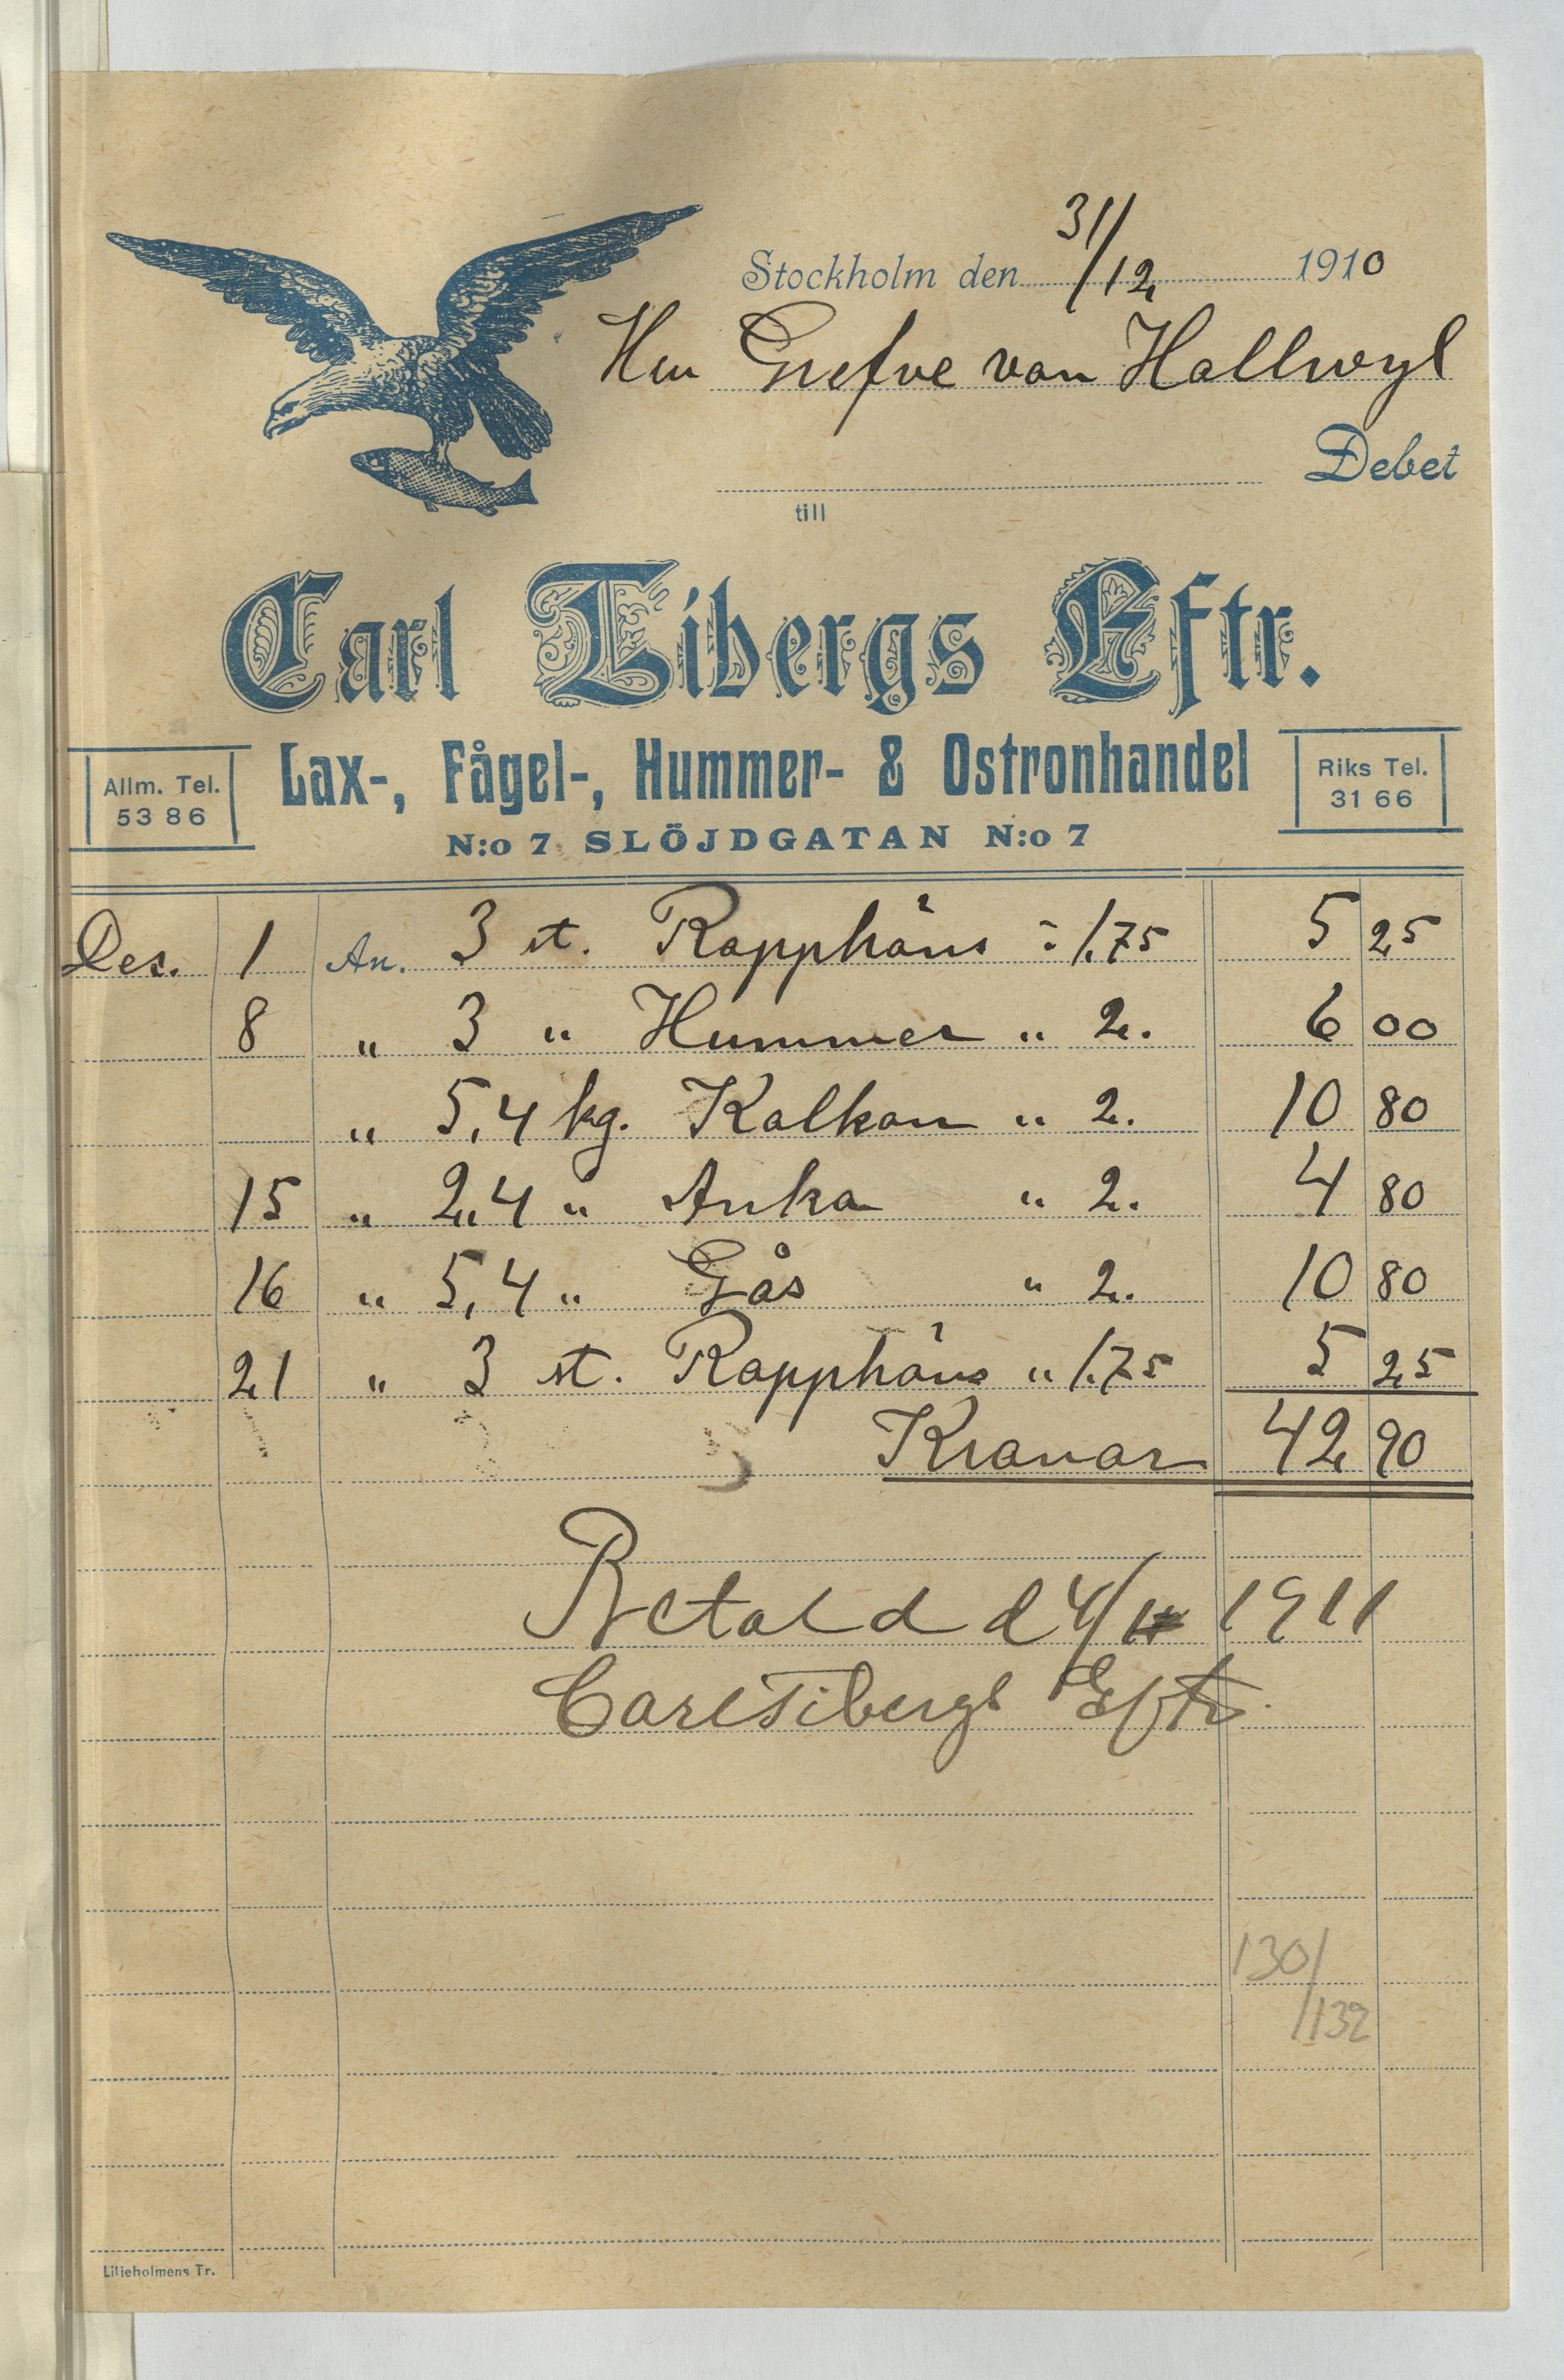 Stockholm den 31/12 1910
Herr Grefve von Hallwyl
Debet
till
Carl Tibergs Eftr.
Lax-, Fågel-, Hummer- & Ostronhandel
Allm. Tel.
53 86
Riks Tel.
31 66
N:o 7 SLÖJDGATAN N:o 7
Des. 1 An. 3 st. Rapphöns à 1.75 5 25
8 " 3 " Hummer " 2. 6 00
" 5,4 kg. Kalkon " 2. 10 80
15 " 2,4 " Anka " 2. 4 80
16 " 5,4 " Gås " 2. 10 80
21 " 3 st. Rapphöns " 1.75 5 25
Kronor 42 90
Betald d 4/1 1911
Carl Tibergs Eftr.
130/
/132
Liljeholmens Tr.